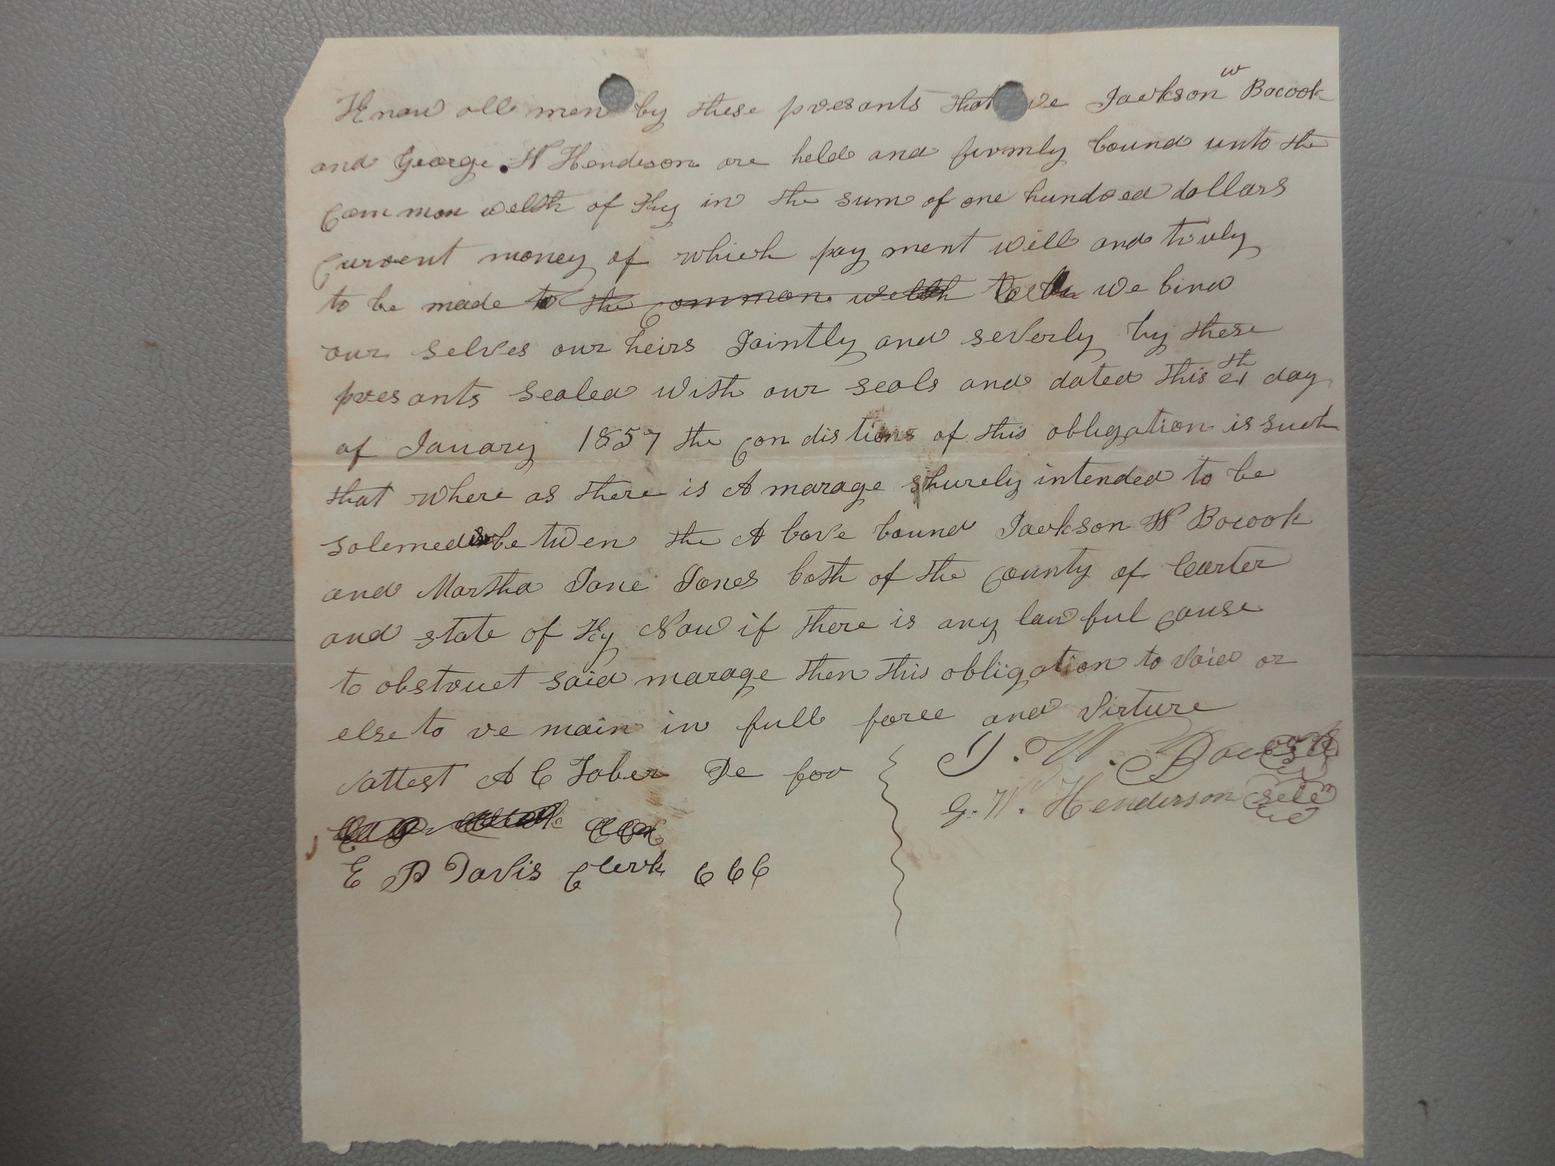 Know all men by these presants that we Jackson W Bocook
and George W Hendeson are held and firmly bound unto the
Common welth of Ky in the sum of one hundred dollars
Current money of which pay ment will and truly
to be made to the Common welth we bind
our selves our heirs Jointly and severly by these
presants sealed with our seals and dated this 21th day
of January 1857 the Con distions of this obligation is such
that where as there is A marage shurely intended to be
solemed be twen the A bove bound Jackson W Bocook
and Martha Jane Jones both of the County of Carter
and state of Ky Now if there is any law ful Cause
to obstruct said marage then this obligation to void or
else to re main in full force and virture
attest A C Tober De for
J. W. Bocook
G. W. Henderson sele
E P Davis Clerk C C C